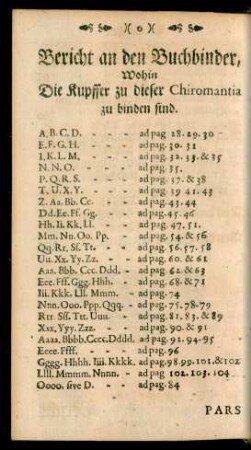 )( o )(
Bericht an den Buchbinder,
Wohin
Die Kupffer zu dieser Chiromantia
zu binden sind.
A. B. C. D. - - - ad pag. 28. 29. 30
E. F. G. H. - - - ad pag. 30. 31
I. K. L. M. - - - ad pag. 32. 33. & 35
N. N. O. - - - ad pag. 35.
P. Q. R. S. - - - ad pag. 37. & 38
T. U. X. Y. - - - ad pag. 39 41. 43
Z. Aa. Bb. Cc. - - ad pag. 43. 44
Dd. Ee. Ff. Gg. - - ad pag. 45. 46
Hh. Ii. Kk. Ll. - - ad pag. 47. 51.
Mm. Nn. Oo. Pp. - - ad pag. 54. & 56
Qq. Rr. Sf. Tt. - - ad pag. 56. 57. 58
Uu. Xx. Yy. Zz. - - ad pag. 60. & 61
Aaa. Bbb. Ccc. Dddd. - ad pag 62. & 63
Eee. Fff. Ggg. Hhh. - ad pag. 68. & 71
Iii. Kkk. Lll. Mmm. - ad pag. 74
Nnn. Ooo. Ppp. Qqq. - ad pag. 75. 78. 79
Rrr. Sff. Ttt. Uuu. - ad pag. 81. 83. & 89
Xxx, Yyy. Zzz. - - ad pag. 90. & 91
Aaaa, Bbbb. Cccc. Dddd. ad pag. 92. 94. 95
Eeee. Ffff. - - ad pag. 96
Gggg. Hhhh. Iiii. Kkkk. ad pag. 98. 99. 101. & 102
Llll. Mmmm. Nnnn. - ad pag 102. 103. 104
Oooo. sive D. - - ad pag. 84
PARS